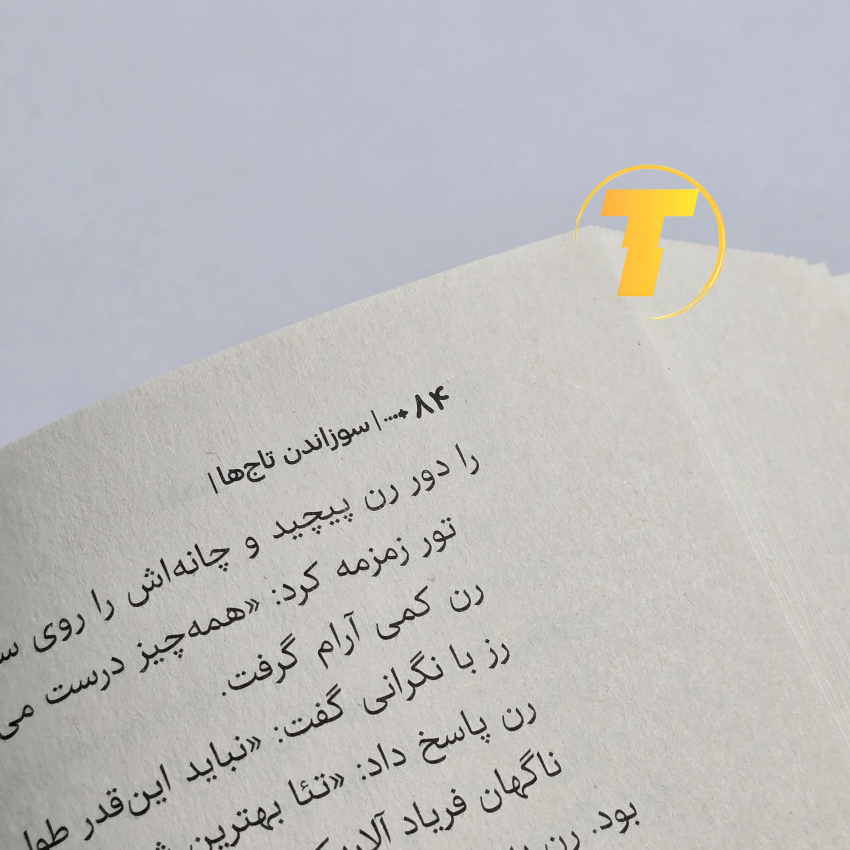 T
۸۴ | سوزاندن تاج‌ها |
را دور رن پیچید و چانه‌اش را روی
تور زمزمه کرد: «همه‌چیز درست
رن کمی آرام گرفت.
رز با نگرانی گفت: «نباید این‌قدر
رن پاسخ داد: «تئا بهترین
ناگهان فریاد
بود. رن